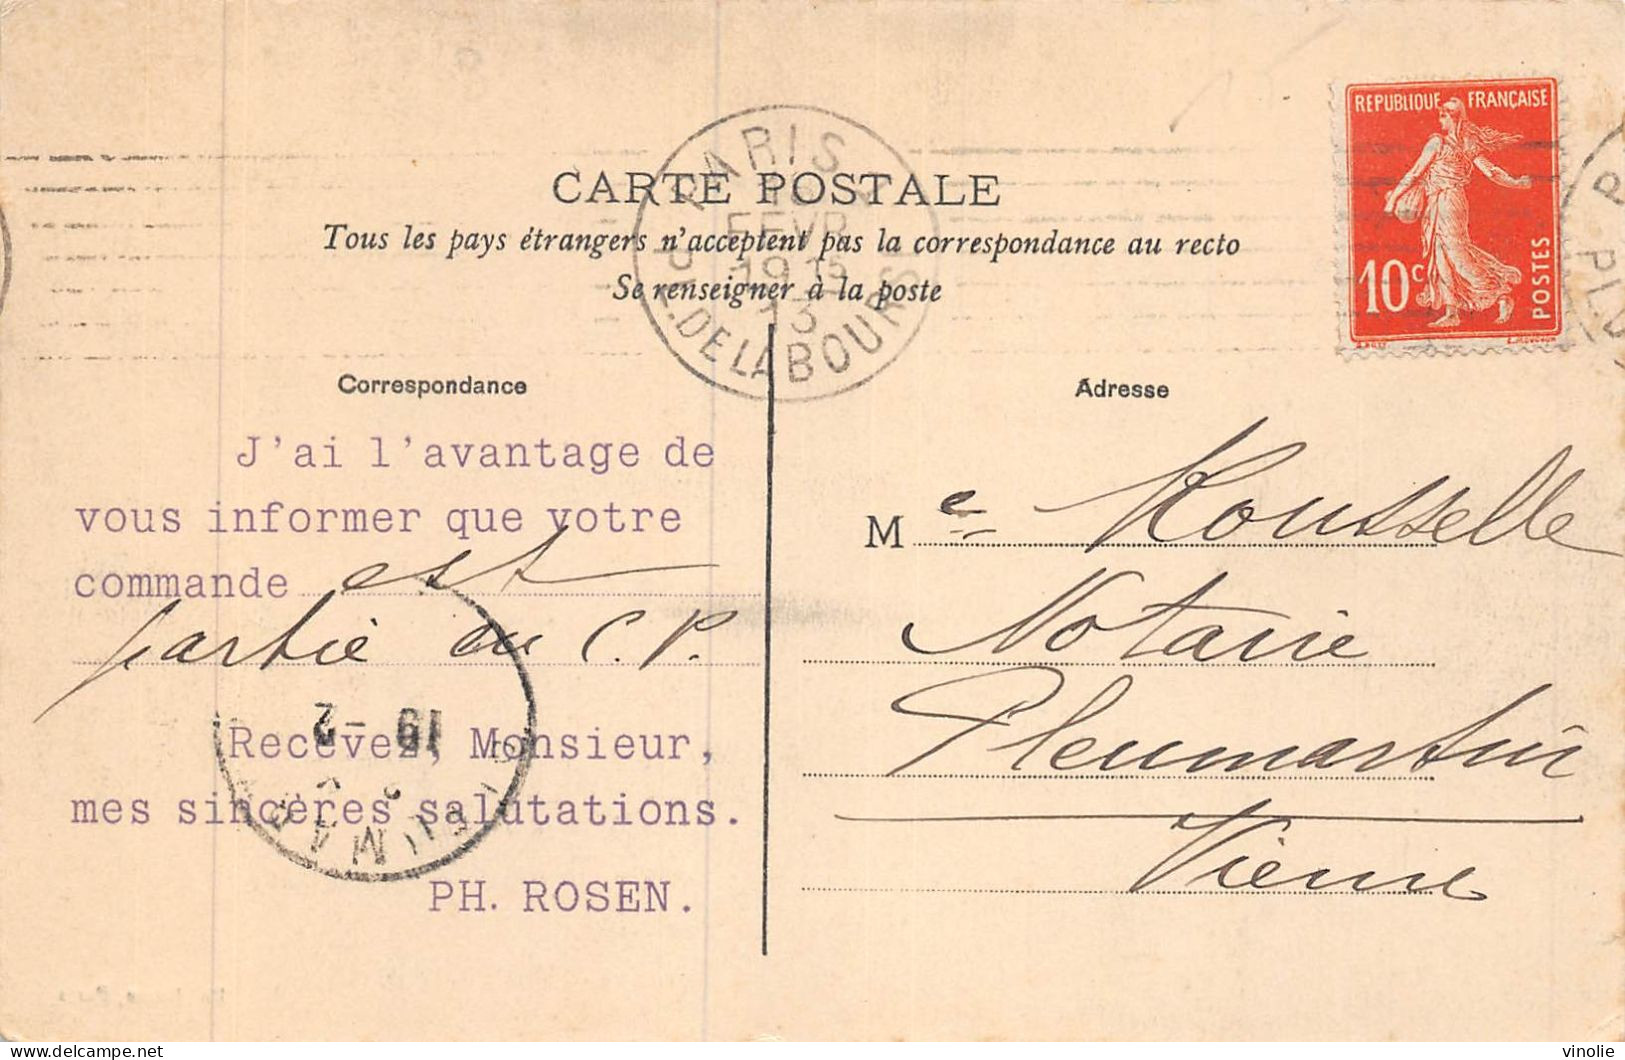 REPUBLIQUE FRANÇAISE
10c
POSTES
PARIS
FEVR
13
PL. DE LA BOURSE
CARTE POSTALE
Tous les pays étrangers n'acceptent pas la correspondance au recto
Se renseigner à la poste
Correspondance
J'ai l'avantage de
vous informer que votre
commande est
partie en C.P.
Recevez, Monsieur,
mes sincères salutations.
PH. ROSEN.
19 -2
Adresse
Me Rousselle
Notaire
Pleumartin
Vienne
vinolie